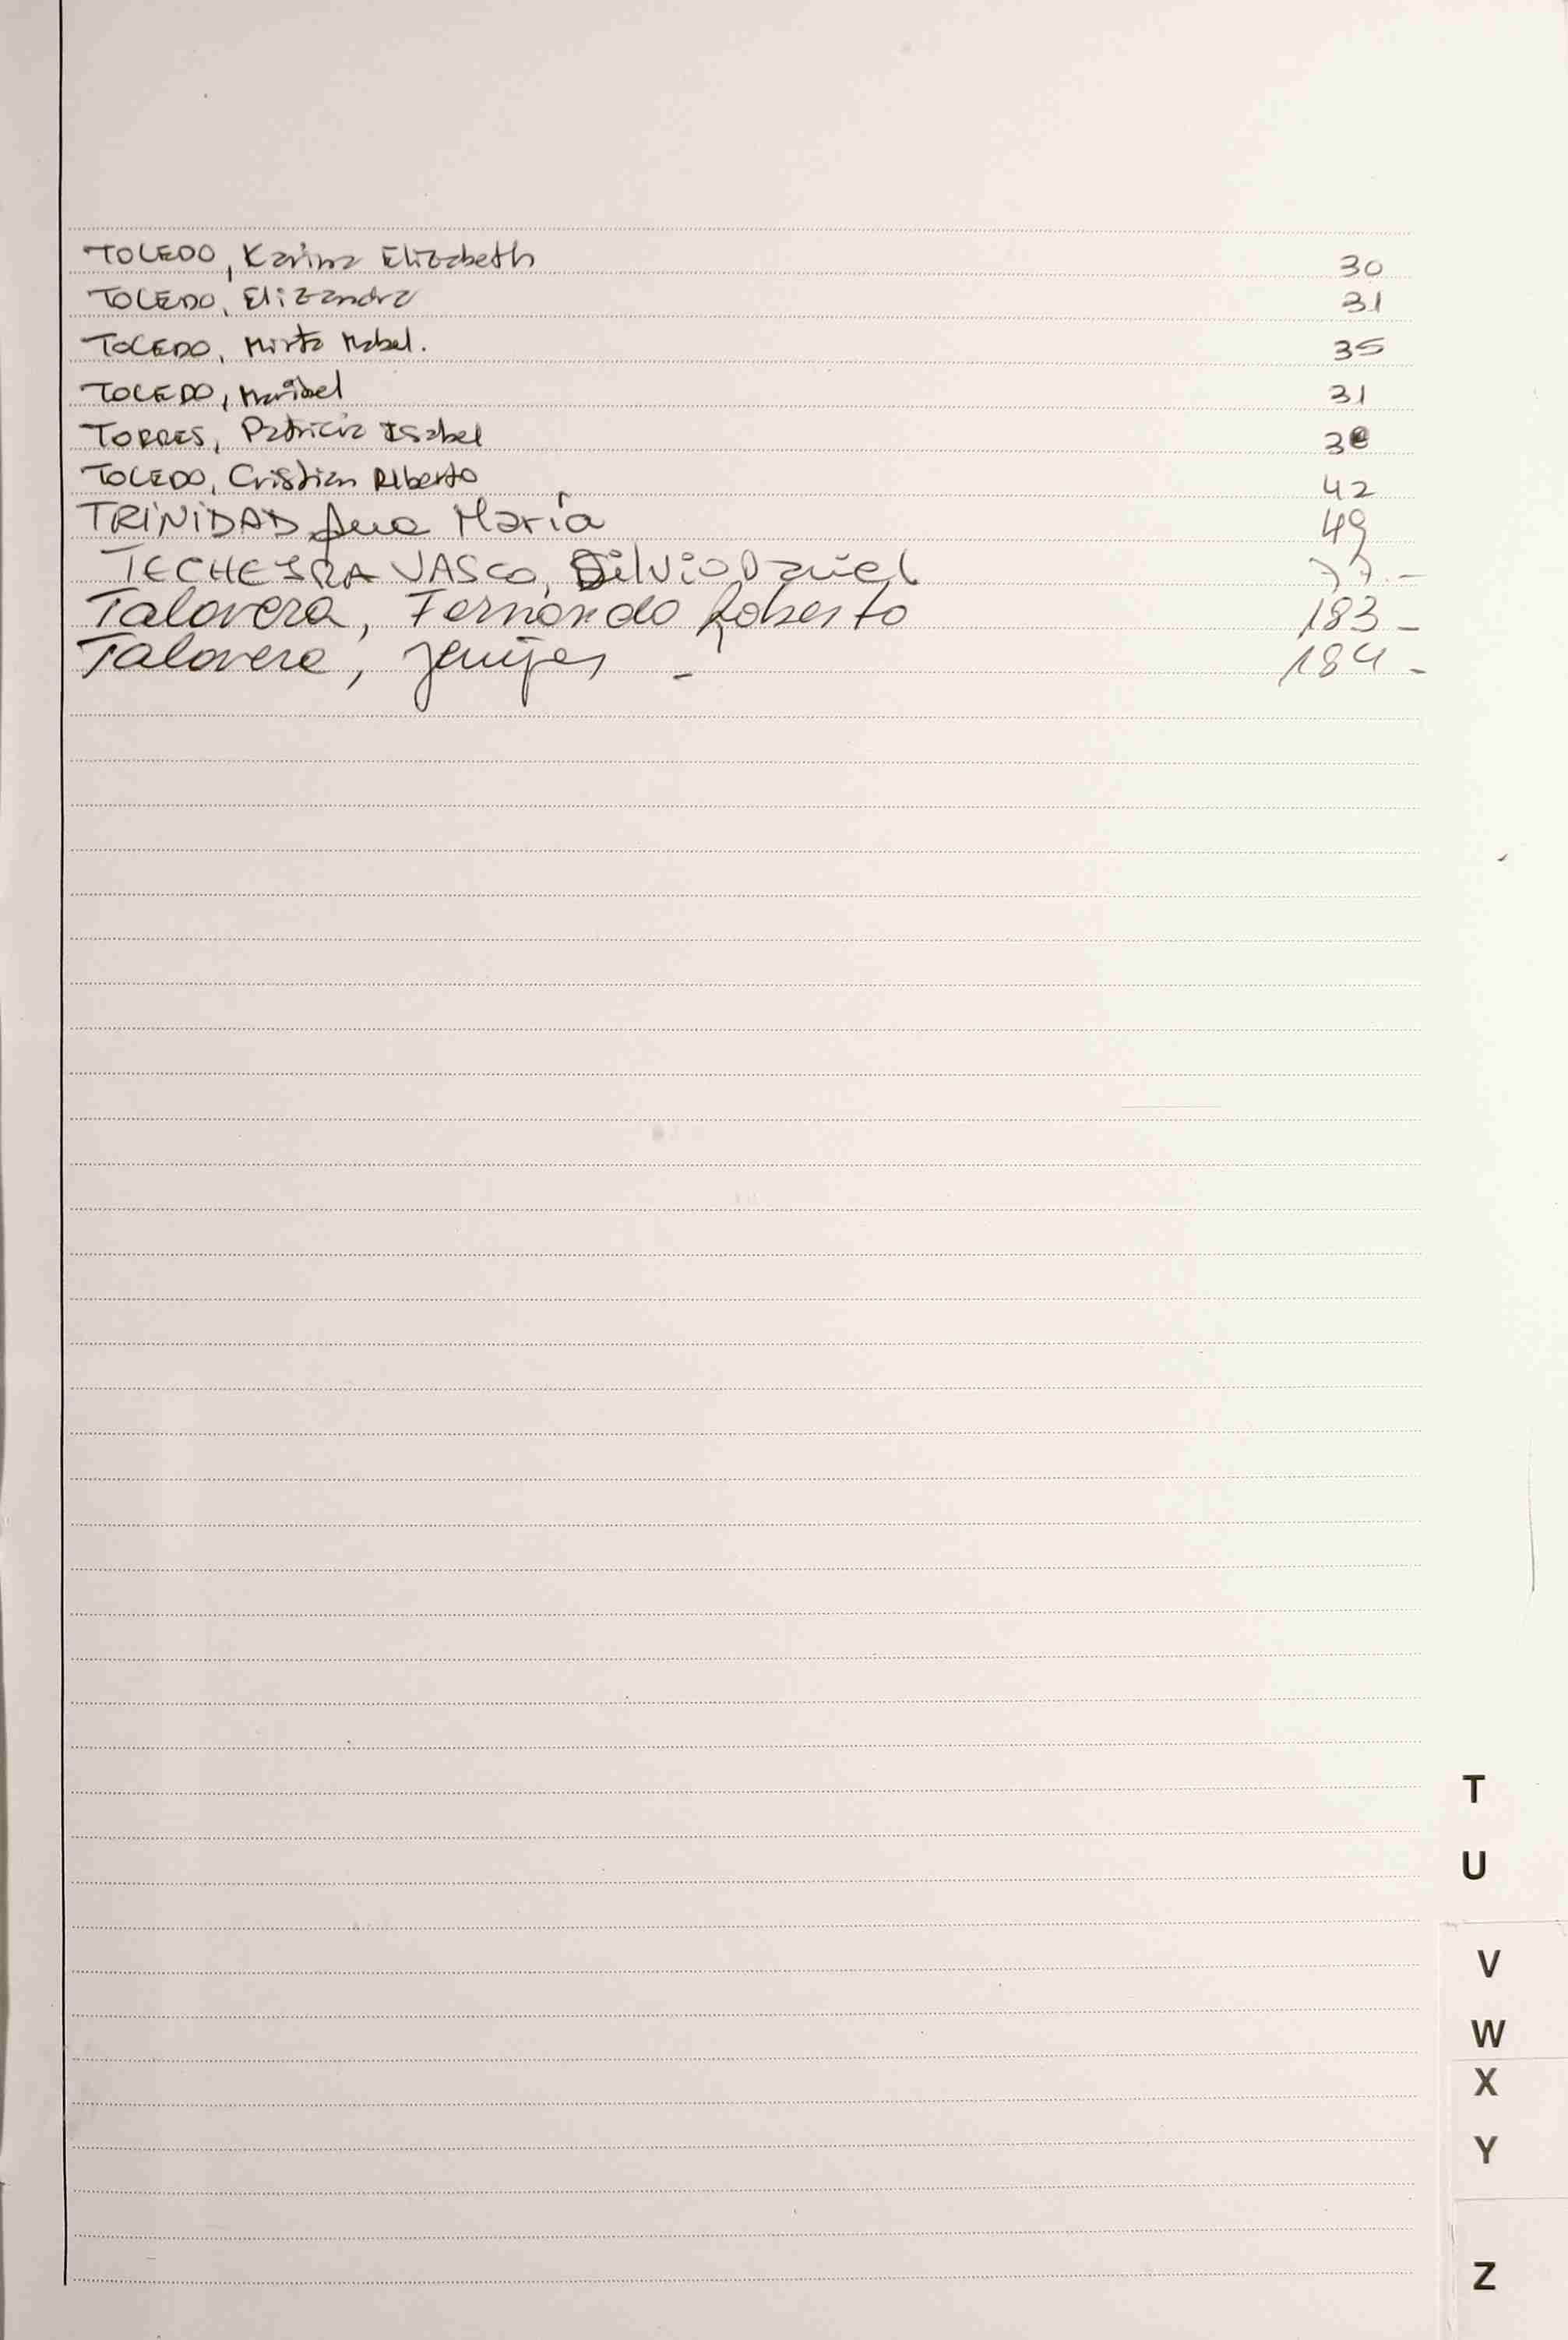 TOLEDO, Karina Elizabeth 30
TOLEDO, Elizandra 31
TOLEDO, Mirta Mabel. 35
TOLEDO, Maribel 31
TORRES, Patricia Isabel
TOLEDO, Cristian Alberto 42
TRINIDAD, Ana María 49
TECHEIRA VASCO, Silvio Daniel 77.-
Talavera, Fernando Roberto 183-
Talavera, Jenifer - 184-
T
U
V
W
X
Y
Z